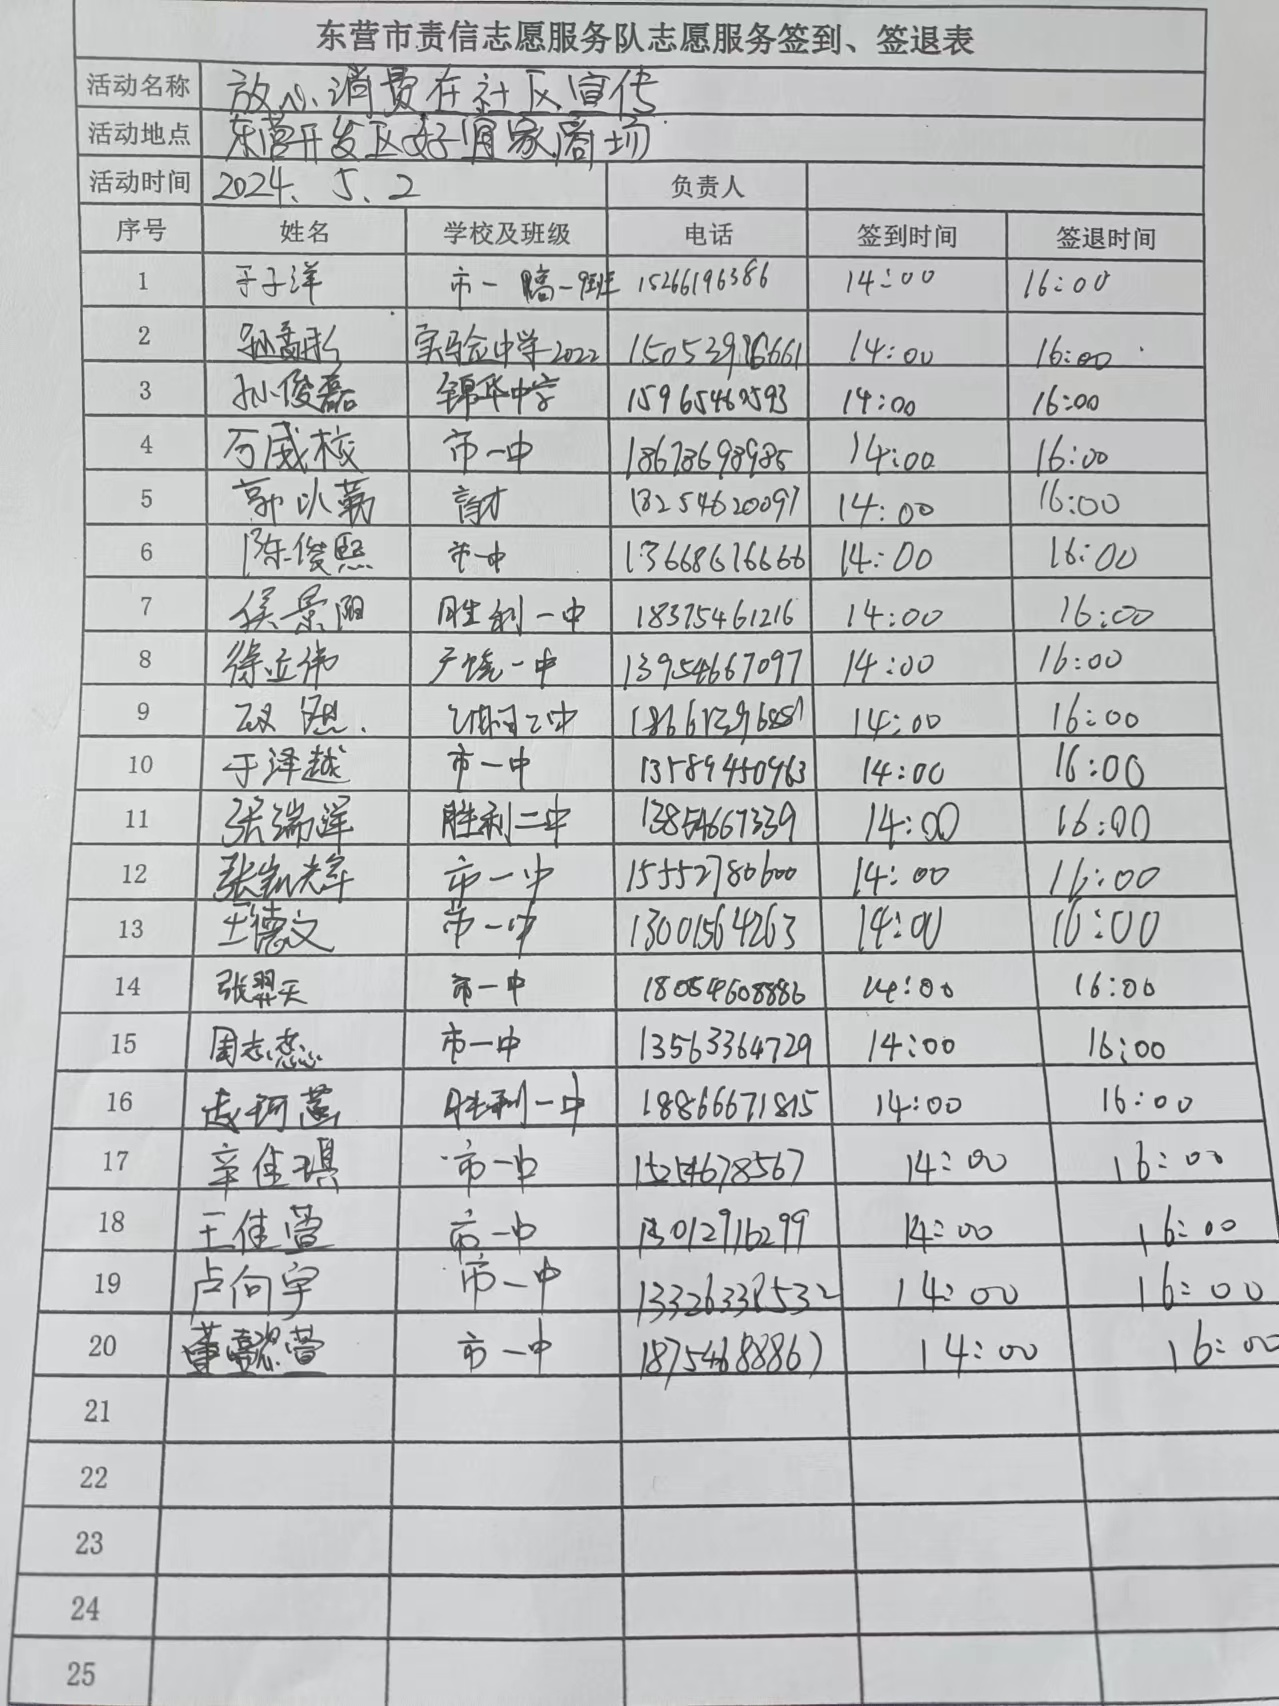 东营市责信志愿服务队志愿服务签到、签退表
活动名称 放心消费在社区宣传
活动地点 东营开发区好宜家商场
活动时间 2024. 5. 2 负责人
序号 姓名 学校及班级 电话 签到时间 签退时间
1 于子洋 市一 高一 班 15266196386 14:00 16:00
2 孙 实验中学2022 14:00 16:00
3 孙俊磊 锦华中学 15965460593 14:00 16:00
4 万威校 市一中 18678698985 14:00 16:00
5 郭以勤 育才 18254620097 14:00 16:00
6 陈俊熙 市一中 13668616666 14:00 16:00
7 侯景阳 胜利一中 18375461216 14:00 16:00
8 徐立伟 广饶一中 13954667097 14:00 16:00
9 14:00 16:00
10 于泽越 市一中 13589450963 14:00 16:00
11 张瑞洋 胜利二中 13854667339 14:00 16:00
12 张凯辉 市一中 15552780600 14:00 16:00
13 王德文 市一中 13001564263 14:00 16:00
14 张羿天 市一中 18054608886 14:00 16:00
15 周志 市一中 13563364729 14:00 16:00
16 胜利一中 18866671815 14:00 16:00
17 辛佳琪 市一中 15254678567 14:00 16:00
18 王佳萱 市一中 13012916299 14:00 16:00
19 卢向宇 市一中 13326338532 14:00 16:00
20 董 萱 市一中 18754688867 14:00 16:00
21
22
23
24
25